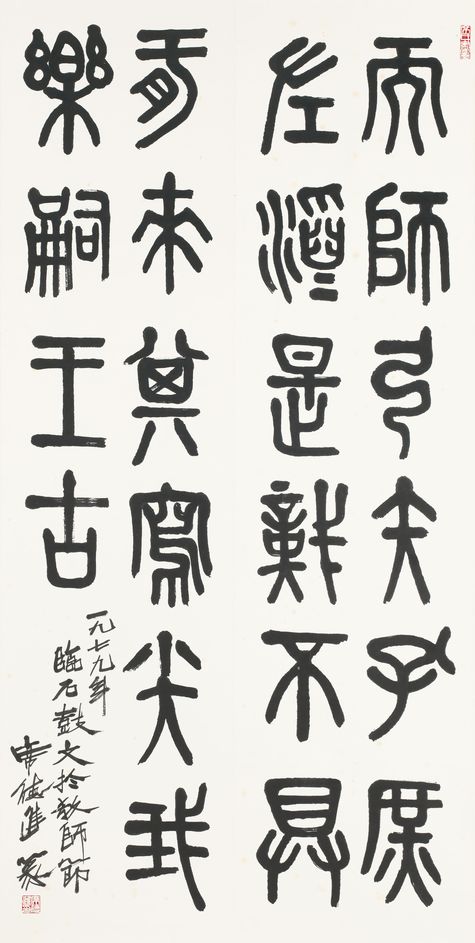 而師弓矢孔庶
左滔滔是戠不具
來其寫小大我
樂嗣王古
一九七九年
臨石鼓文於教師節
席德進篆